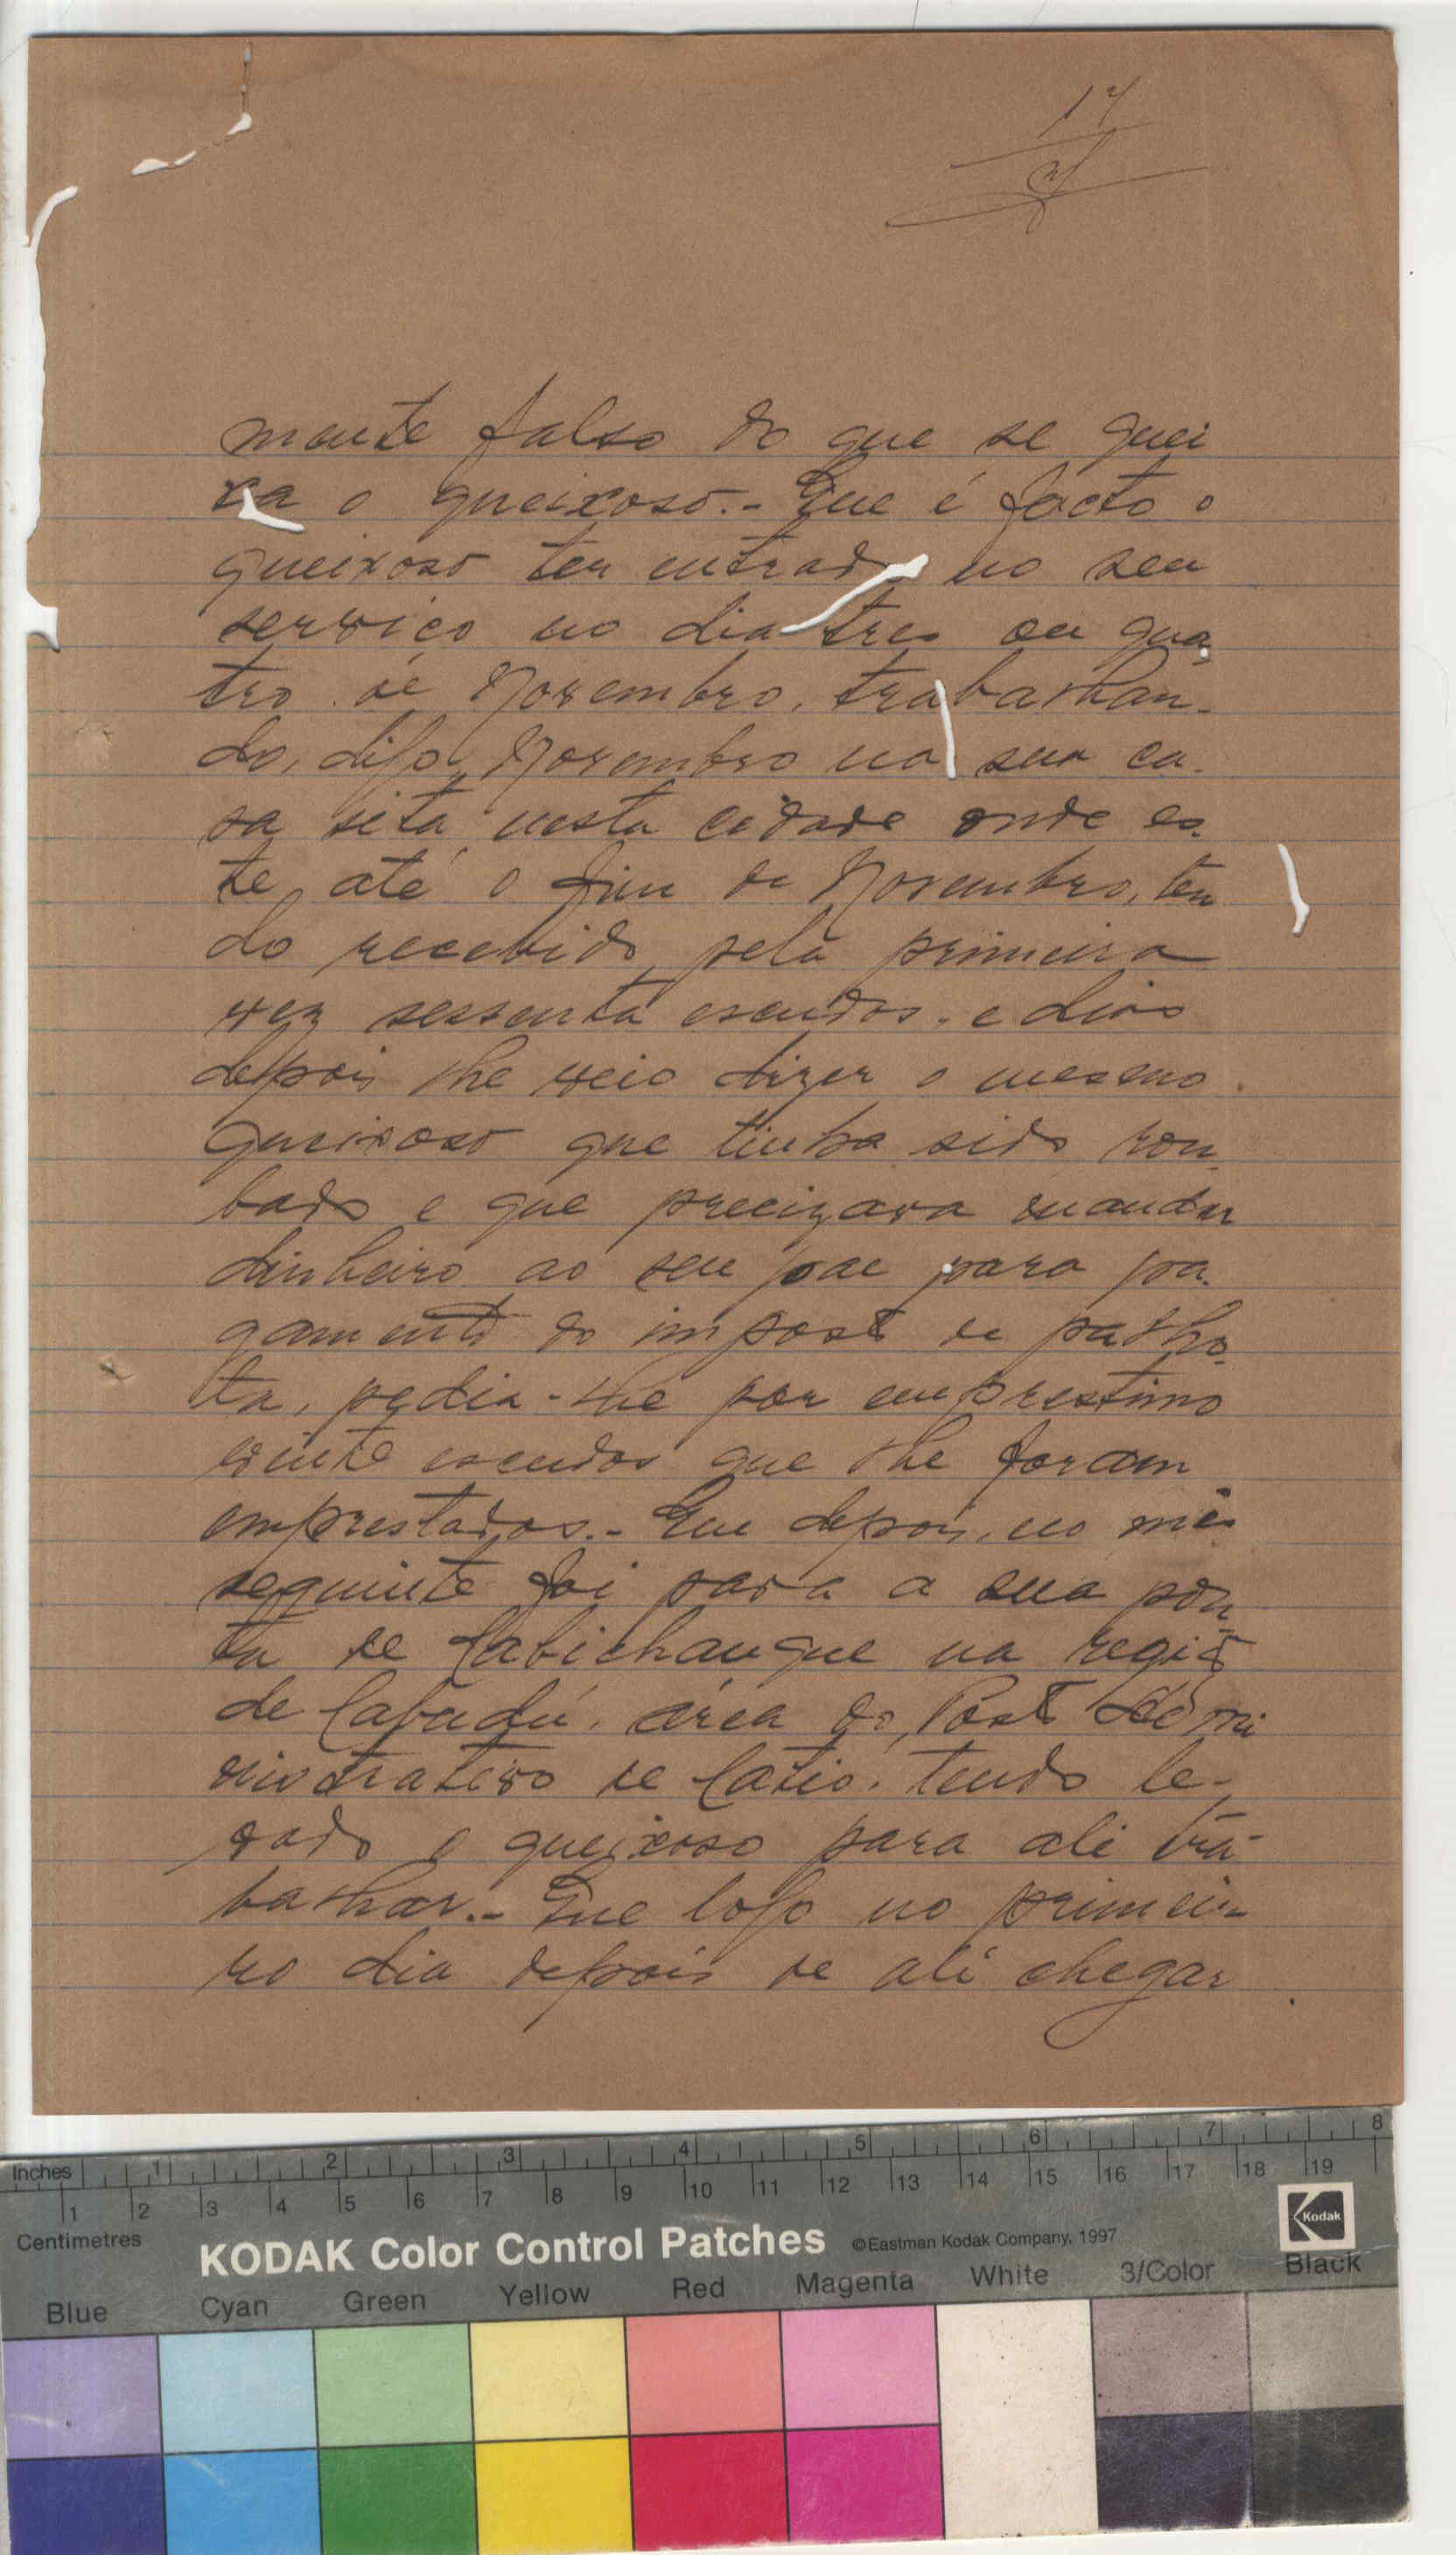 14
mente falso do que se quei
xa o queixoso.- Que é facto o
queixoso ter entrado no seu
serviço no dia tres ou qua-
tro de Novembro, trabalhan-
do, digo, Novembro na sua ca-
sa sita nesta cidade onde es-
te até o fim de Novembro, ten
do recebido pela primeira
vez sessenta escudos, e dias
depois lhe veio dizer o mesmo
queixoso que tinha sido rou-
bado e que precizava mandar
dinheiro ao seu pae para pa-
gamento do imposto de palho-
ta, pedia-lhe por emprestimo
vinte escudos que lhe foram
emprestados.- Que depois, no mês
seguinte foi para a sua pon-
ta de Cabichanque na região
de Cafadú, área do Posto Admi
nistrativo de Catió, tendo le-
vado o queixoso para ali tra-
balhar.- Que logo no primei-
ro dia depois de ali chegar
Inches 1 2 3 4 5 6 7 8
1 2 3 4 5 6 7 8 9 10 11 12 13 14 15 16 17 18 19
Centimetres
KODAK Color Control Patches ©Eastman Kodak Company, 1997 Kodak
Blue Cyan Green Yellow Red Magenta White 3/Color Black